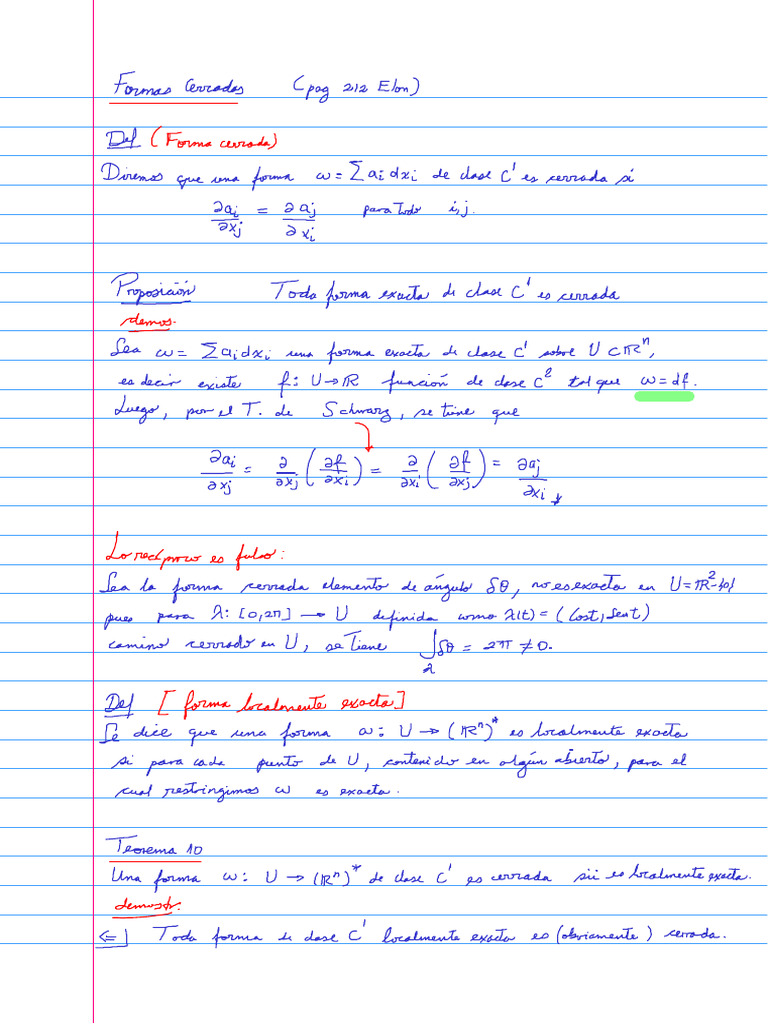 Formas Cerradas (pag 212 Elon)
Def (Forma cerrada)
Diremos que una forma ω = ∑ aᵢ dxᵢ de clase C¹ es cerrada si
∂aᵢ/∂xⱼ = ∂aⱼ/∂xᵢ para todo i,j.
Proposición Toda forma exacta de clase C¹ es cerrada
demos.
Sea ω = ∑ aᵢ dxᵢ una forma exacta de clase C¹ sobre U ⊂ ℝⁿ,
es decir existe f: U → ℝ función de clase C² tal que ω = df.
Luego, por el T. de Schwarz, se tiene que
∂aᵢ/∂xⱼ = ∂/∂xⱼ (∂f/∂xᵢ) = ∂/∂xᵢ (∂f/∂xⱼ) = ∂aⱼ/∂xᵢ
Lo recíproco es falso:
Sea la forma cerrada elemento de ángulo δθ, no es exacta en U = ℝ²-{0}
pues para λ: [0,2π] → U definida como λ(t) = (Cost, Sent)
camino cerrado en U, se tiene ∫_λ δθ = 2π ≠ 0.
Def [forma localmente exacta]
Se dice que una forma ω: U → (ℝⁿ)* es localmente exacta
si para cada punto de U, contenido en algún abierto, para el
cual restringimos ω es exacta.
Teorema 10
Una forma ω: U → (ℝⁿ)* de clase C¹ es cerrada sii es localmente exacta.
demostr.
⇐] Toda forma de clase C¹ localmente exacta es (obviamente) cerrada.